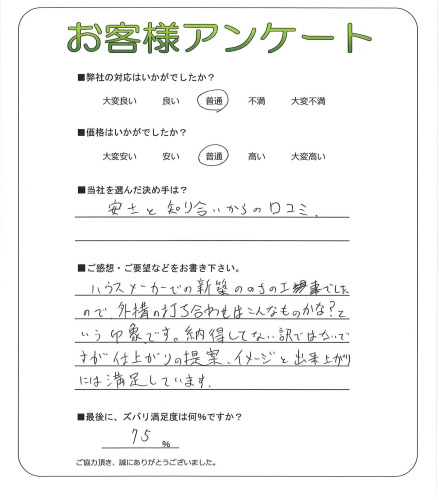 お客様アンケート
■弊社の対応はいかがでしたか?
大変良い 良い 普通 不満 大変不満
■価格はいかがでしたか?
大変安い 安い 普通 高い 大変高い
■当社を選んだ決め手は?
安さと知り合いからの口コミ.
■ご感想・ご要望などをお書き下さい。
ハウスメーカーでの新築ののちの工事でした
ので、外構の打ち合わせはこんなものかな?と
いう印象です。納得してない訳ではないで
すが仕上がりの提案、イメージと出来上がり
には満足しています.
■最後に、ズバリ満足度は何%ですか?
75 %
ご協力頂き、誠にありがとうございました。